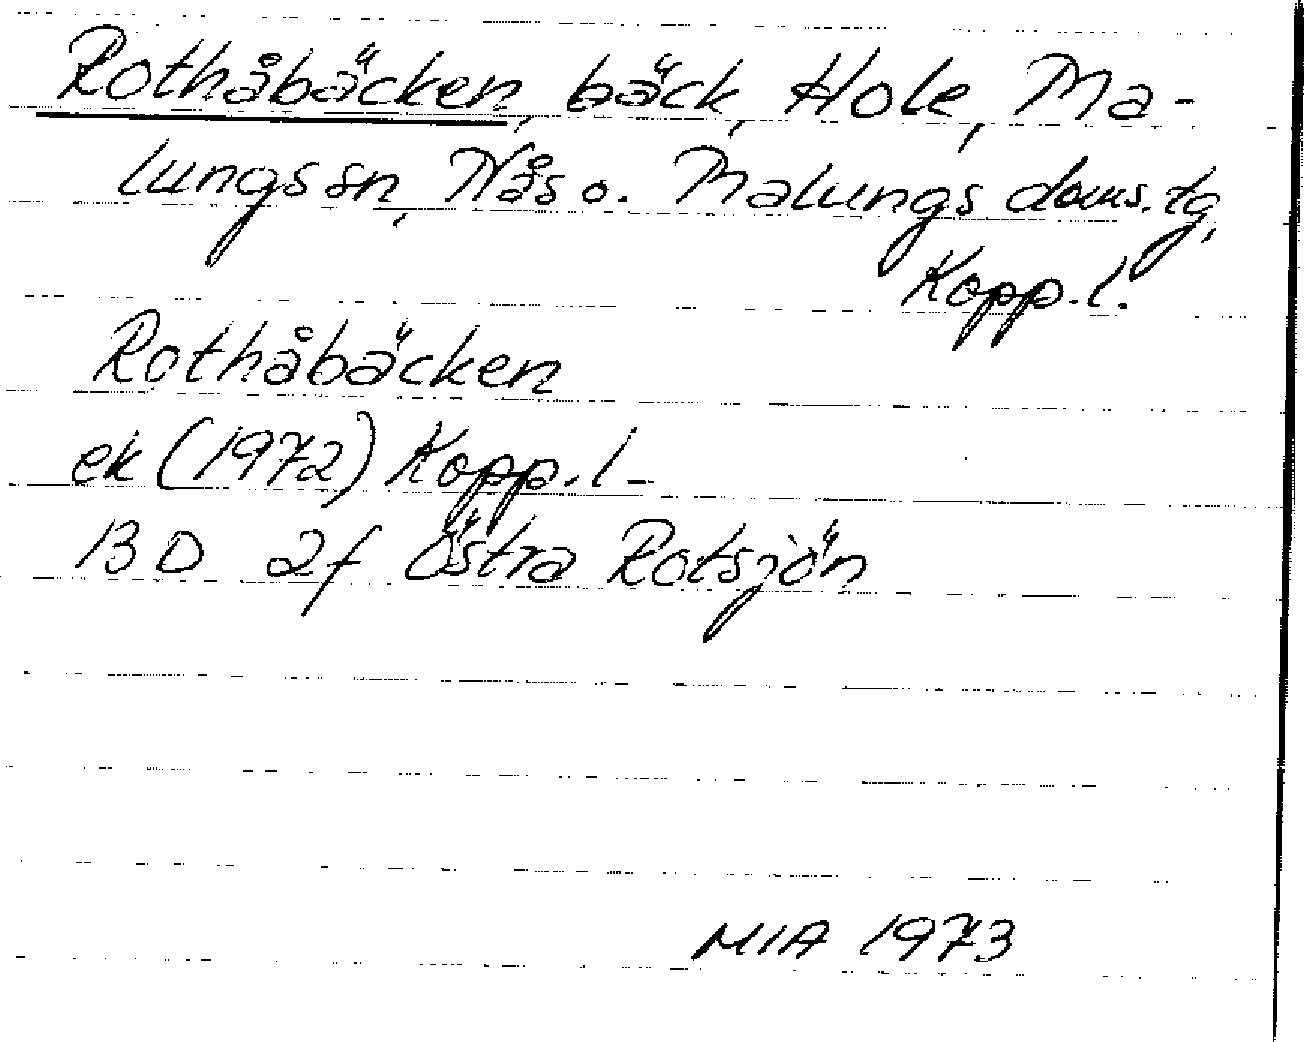 Rothåbäcken, bäck, Hole, Ma-
lungs sn, Nås o. Malungs doms. tg,
Kopp. l.
Rothåbäcken
ek (1972) Kopp. l -
13 D 2f Östra Rotsjön
MIA 1973